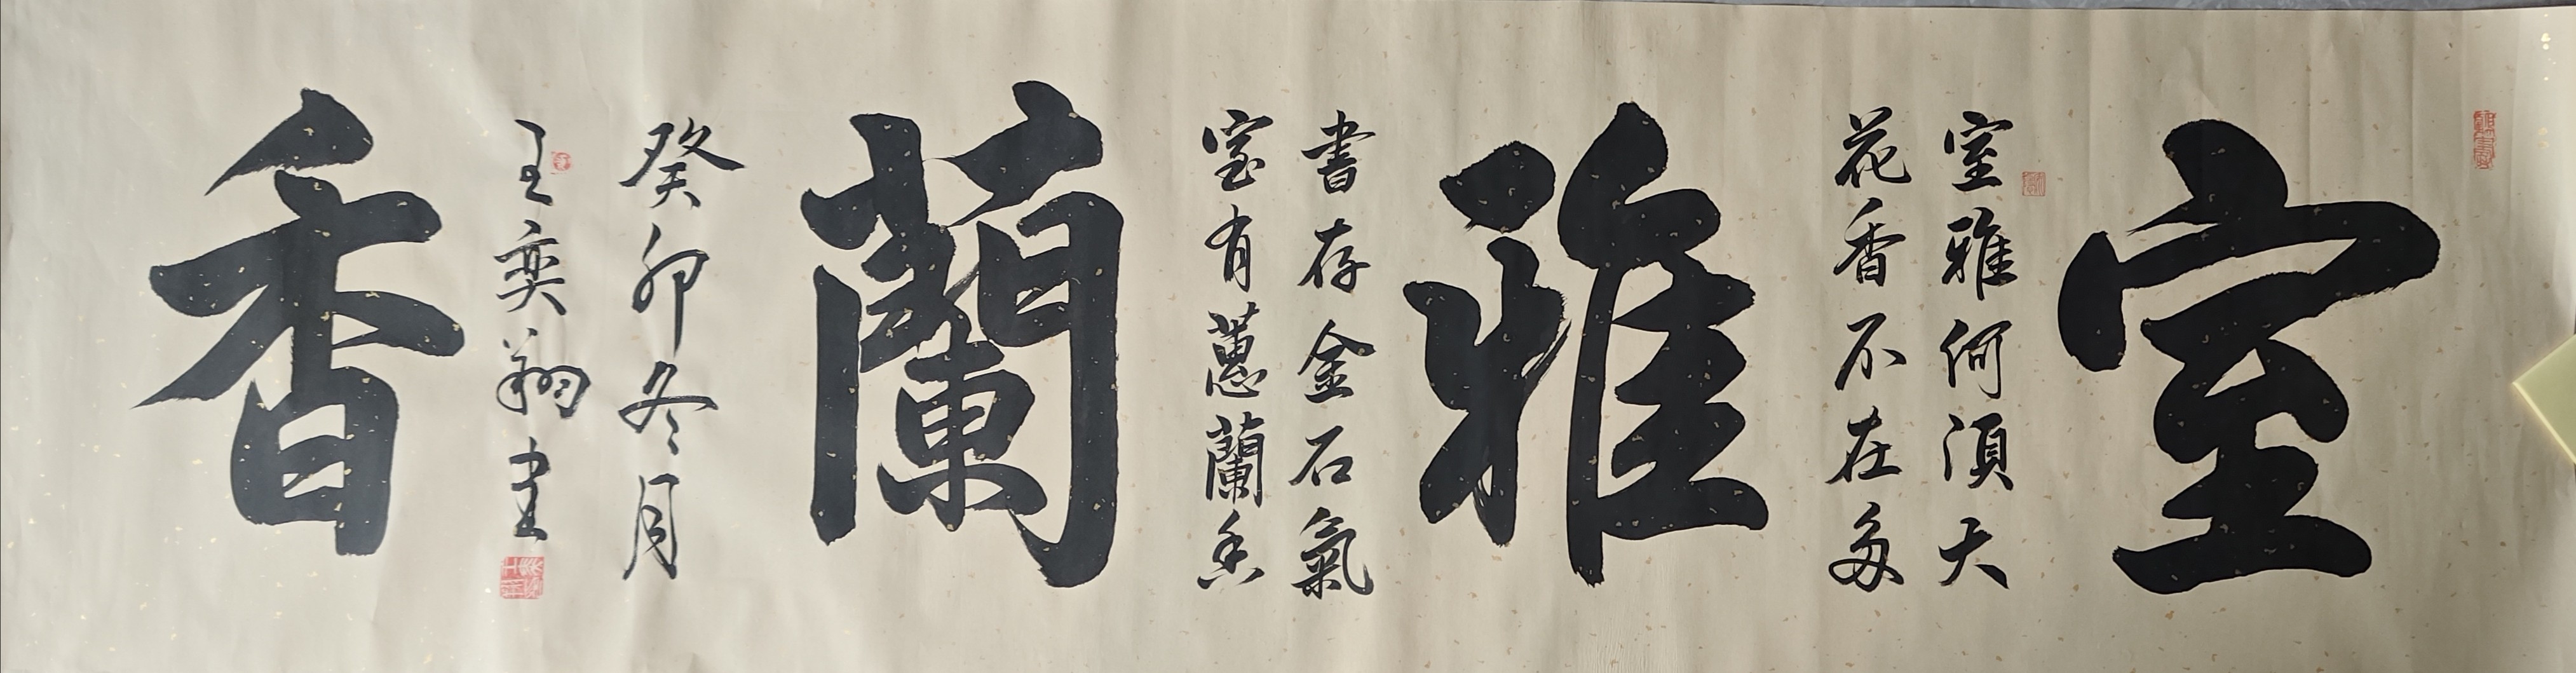 室
室雅何須大
花香不在多
雅
書存金石氣
室有蕙蘭香
蘭
癸卯冬月
王奕翔書
香